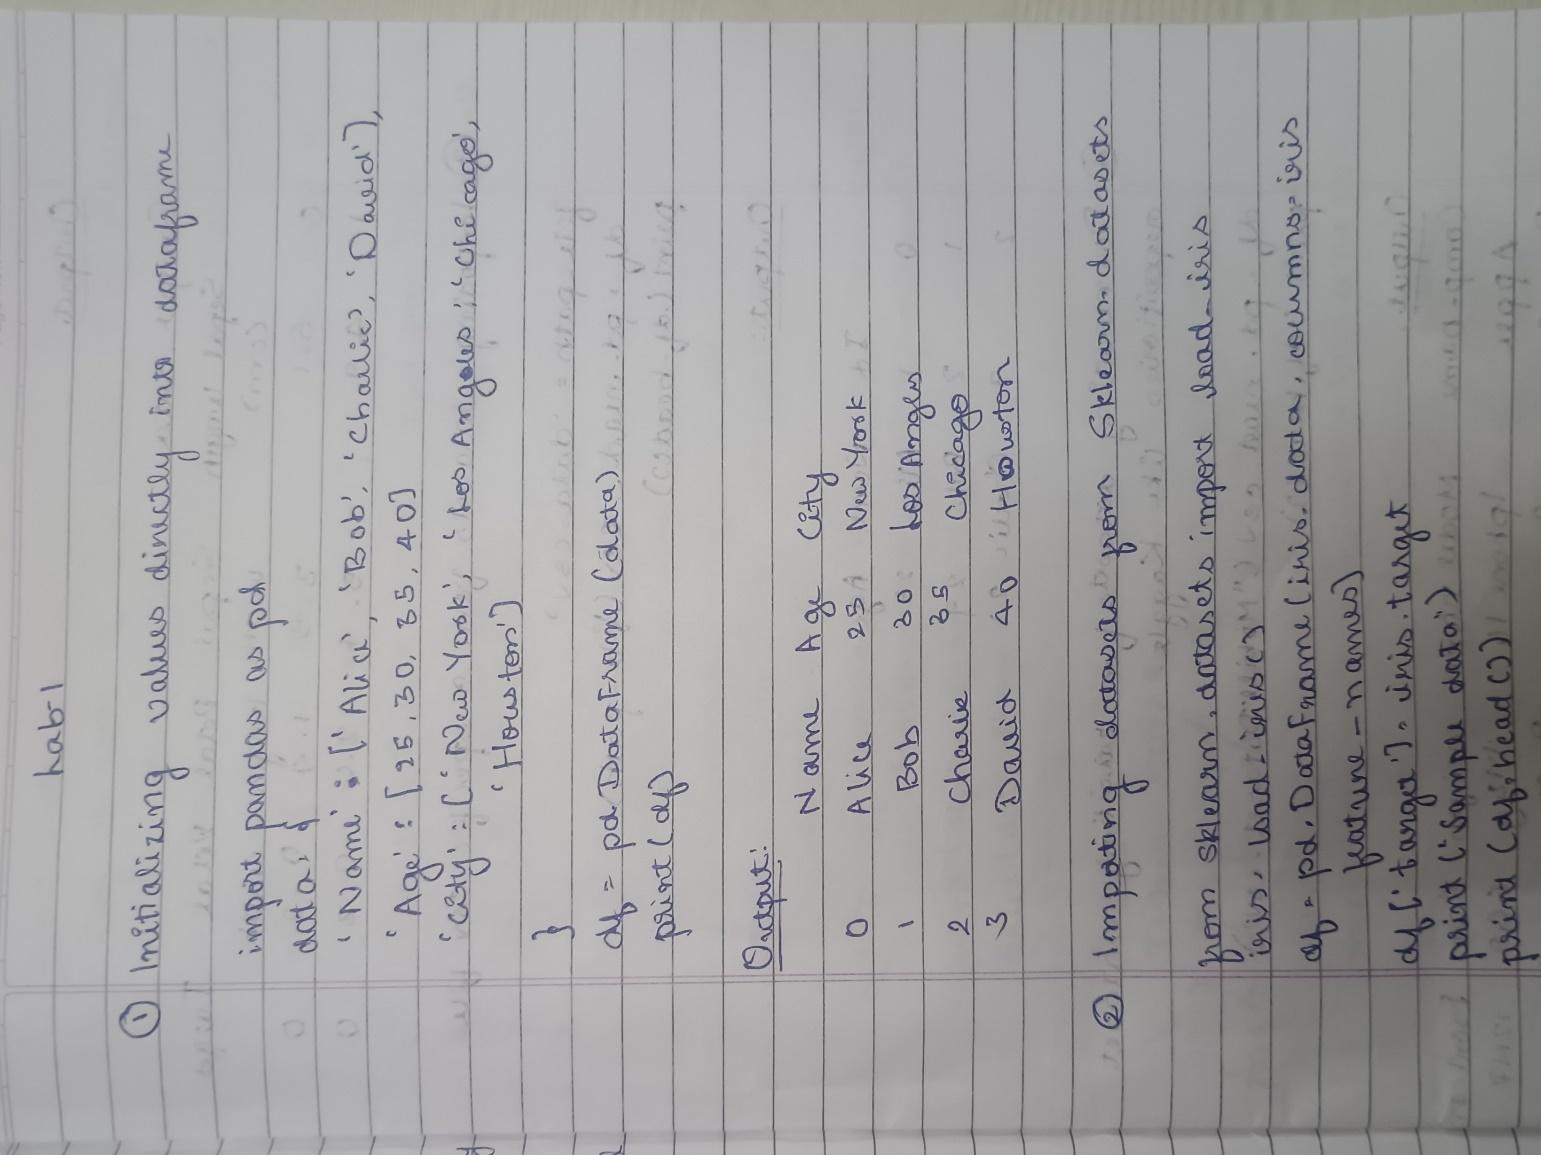 Lab-1
① Initializing values directly into dataframe
import pandas as pd
data = {
'Name' : ['Alice', 'Bob', 'Charlie', 'David'],
'Age' : [25, 30, 35, 40]
'City' : ['New York', 'Los Angeles', 'Chicago',
'Houston']
}
df = pd.DataFrame (data)
print (df)
Output:
Name Age City
0 Alice 25 New York
1 Bob 30 Los Angles
2 Charie 35 Chicago
3 David 40 Houston
② Impoting datasets from Sklearn.datasets
from sklearn.datasets import load_iris
iris = load_iris()
df = pd.DataFrame (iris.data, coumns=iris
feature_names)
df ['target'] = iris.target
print ('Sample data')
print (df.head())